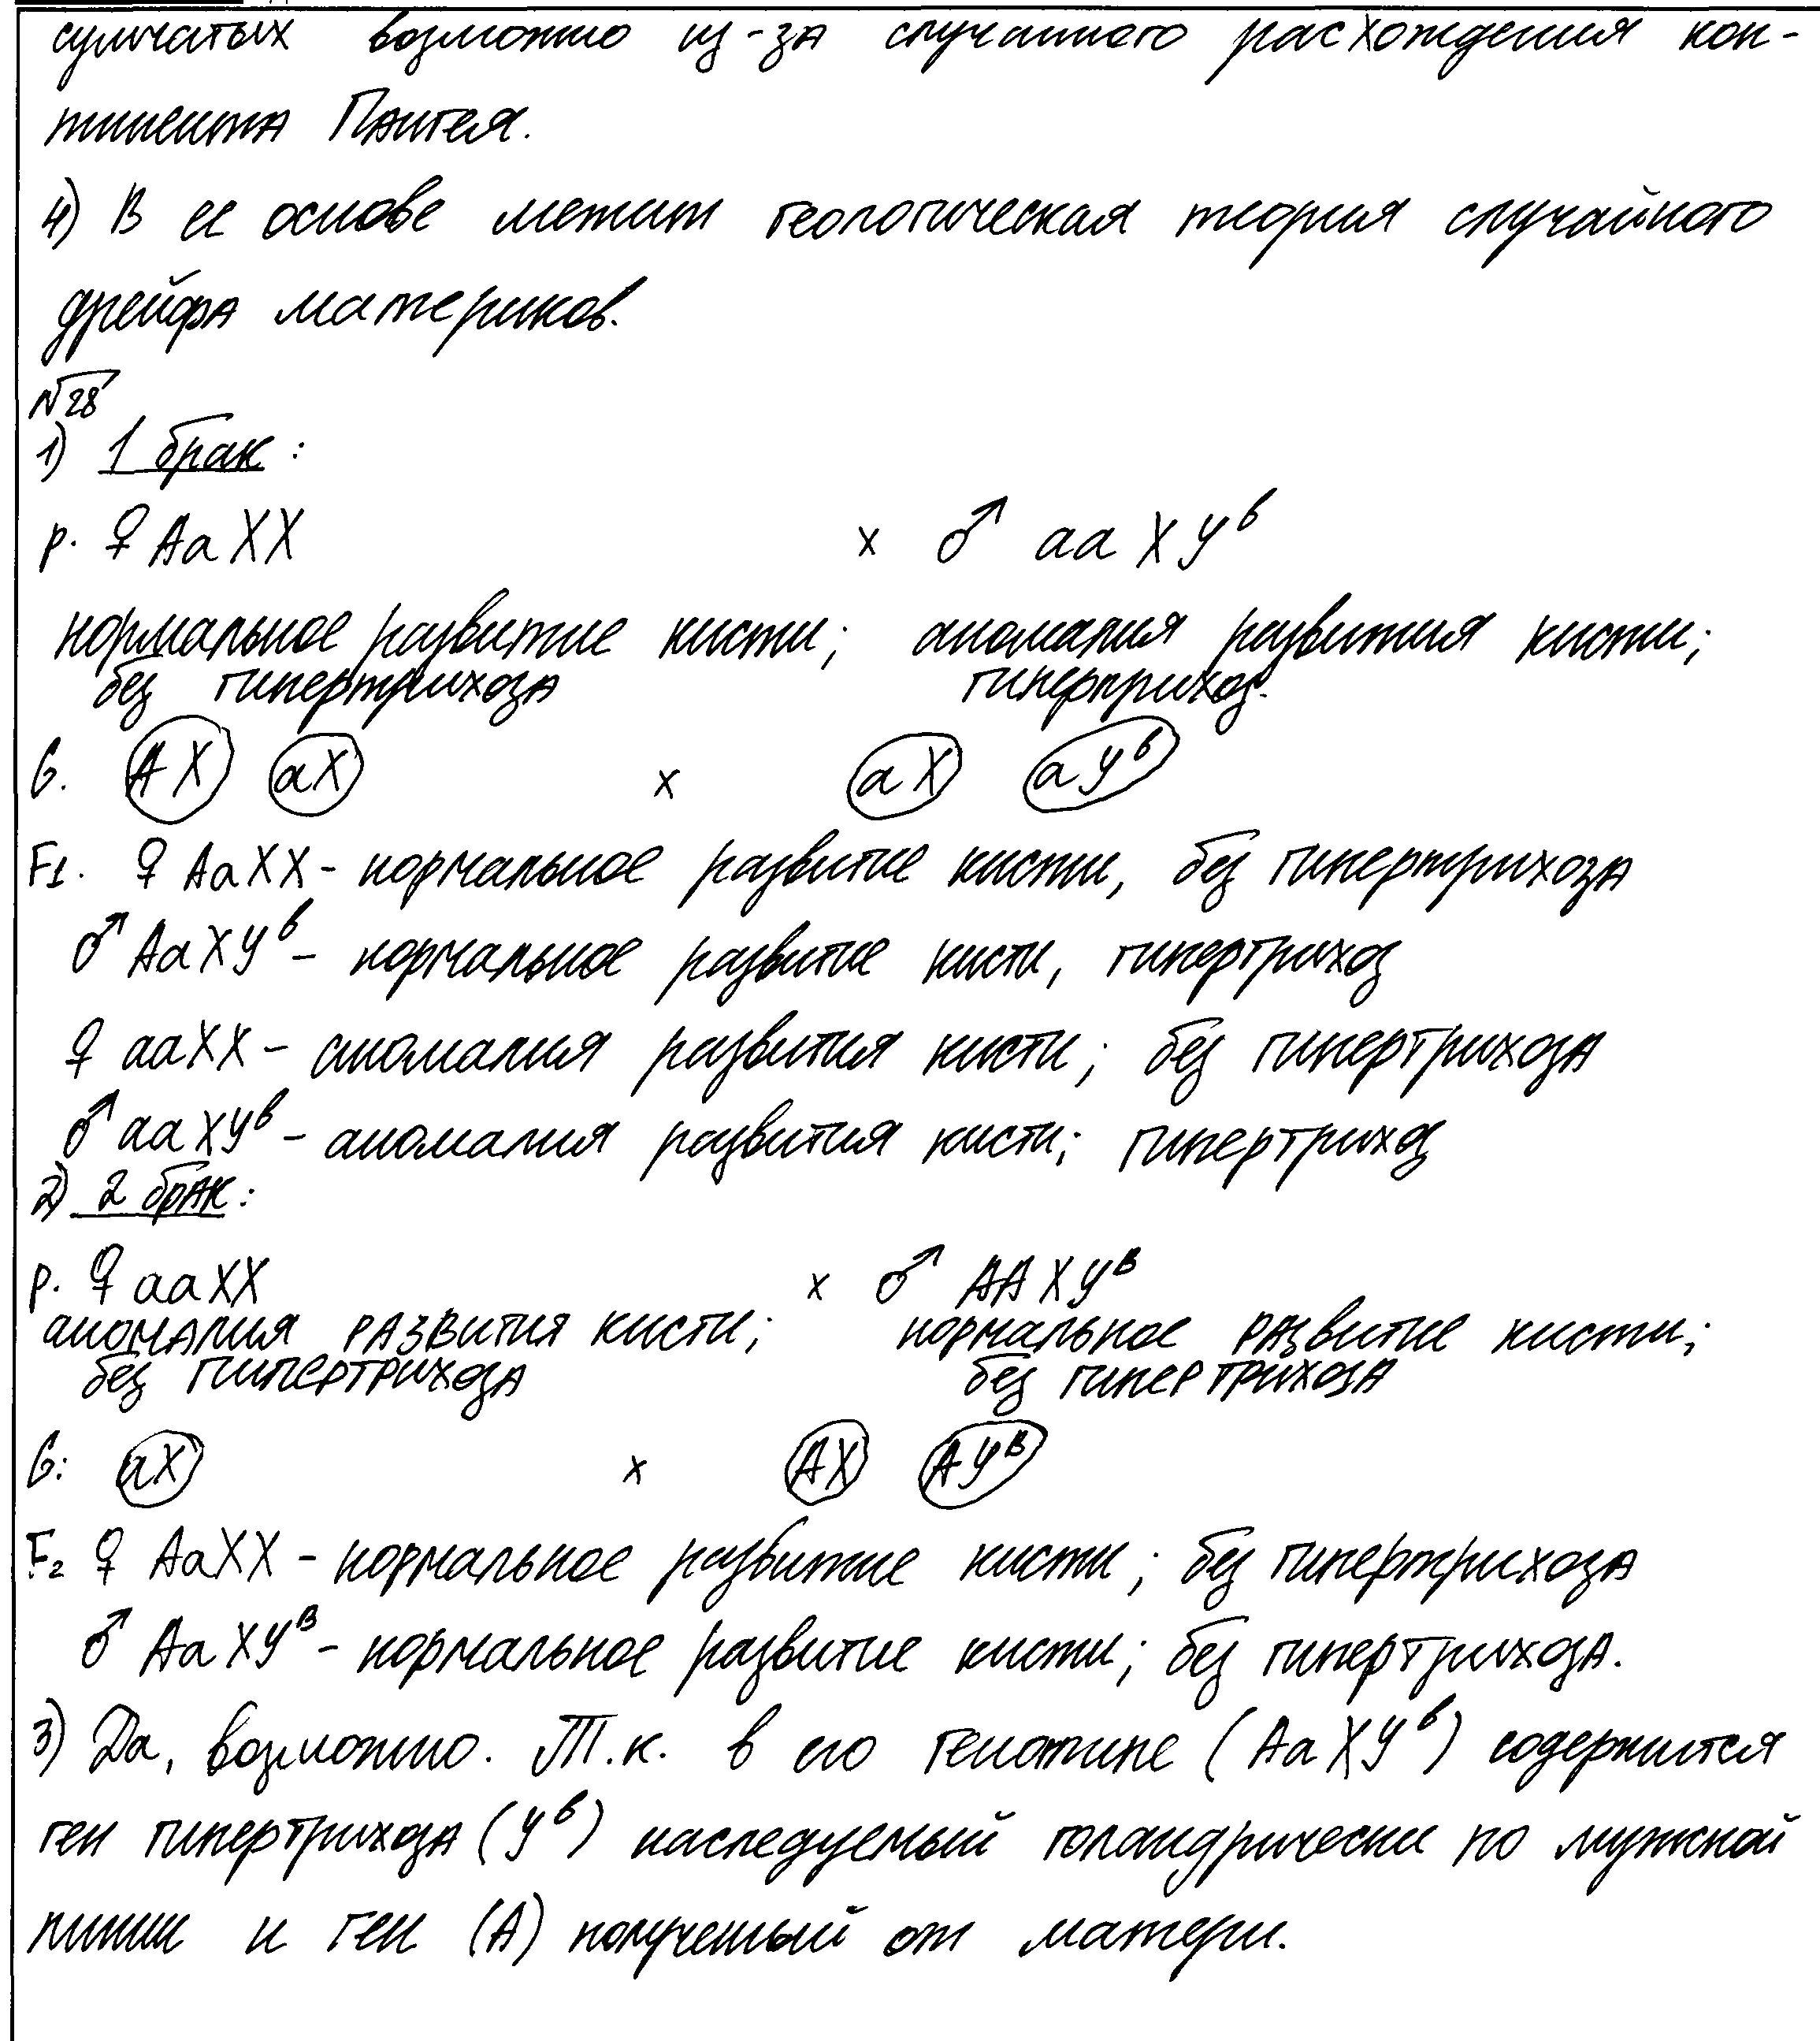 сумчатых возможно из-за случайного расхождения кон-
тинента Пангея.
4) В ее основе лежит геологическая теория случайного
дрейфа материков.
№28
1) 1 брак:
P. ♀ AaXX x ♂ aaXYᵇ
нормальное развитие кисти; аномалия развития кисти;
без гипертрихоза гипертрихоз.
G. AX aX x aX aYᵇ
F1. ♀ AaXX - нормальное развитие кисти, без гипертрихоза
♂ AaXYᵇ - нормальное развитие кисти, гипертрихоз
♀ aaXX - аномалия развития кисти; без гипертрихоза
♂ aaXYᵇ - аномалия развития кисти; гипертрихоз
2) 2 брак:
P. ♀ aaXX x ♂ AAXYᴮ
аномалия развития кисти; нормальное развитие кисти;
без гипертрихоза без гипертрихоза
G: aX x AX AYᴮ
F2 ♀ AaXX - нормальное развитие кисти; без гипертрихоза
♂ AaXYᴮ - нормальное развитие кисти; без гипертрихоза.
3) Да, возможно. Т.к. в его генотипе (AaXYᵇ) содержится
ген гипертрихоза (Yᵇ) наследуемый голандрически по мужской
линии и ген (А) полученный от матери.